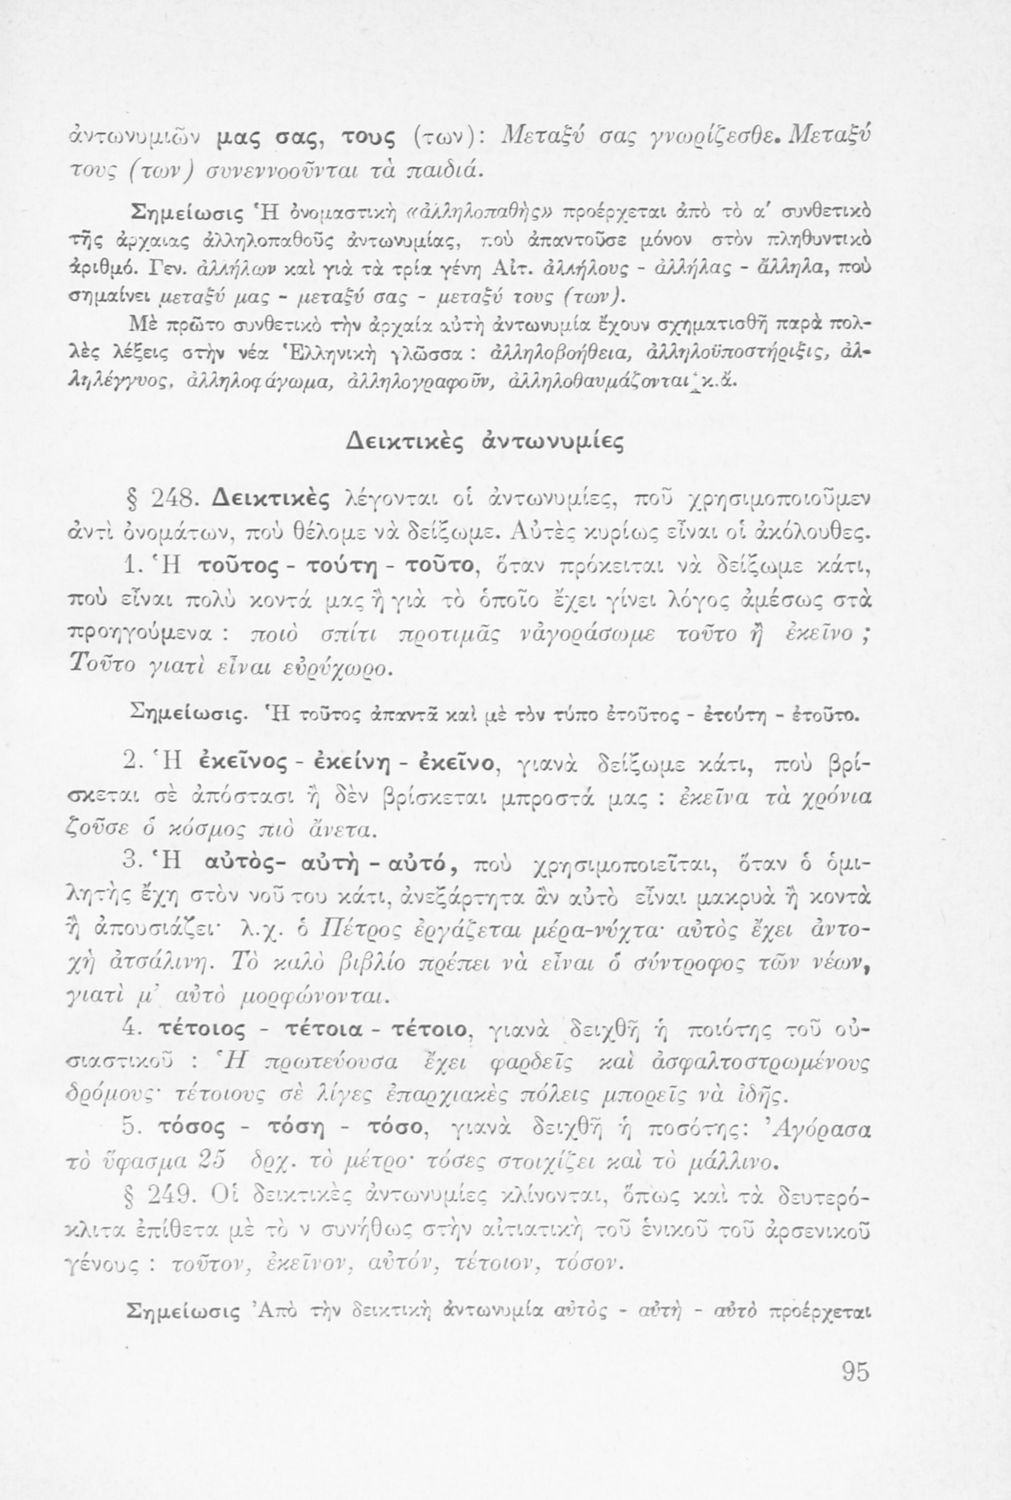 ἀντωνυμιῶν μας σας, τους (των): Μεταξύ σας γνωρίζεσθε. Μεταξύ
τους (των) συνεννοοῦνται τὰ παιδιά.
Σημείωσις Ἡ ὀνομαστικὴ «ἀλληλοπαθὴς» προέρχεται ἀπὸ τὸ α' συνθετικὸ
τῆς ἀρχαιας ἀλληλοπαθοῦς ἀντωνυμίας, ποὺ ἀπαντοῦσε μόνον στὸν πληθυντικὸ
ἀριθμό. Γεν. ἀλλήλων καὶ γιὰ τὰ τρία γένη Αἰτ. ἀλλήλους - ἀλλήλας - ἄλληλα, ποὺ
σημαίνει μεταξύ μας - μεταξύ σας - μεταξύ τους (των).
Μὲ πρῶτο συνθετικὸ τὴν ἀρχαία αὐτὴ ἀντωνυμία ἔχουν σχηματισθῆ παρὰ πολ-
λὲς λέξεις στὴν νέα Ἑλληνικὴ γλῶσσα : ἀλληλοβοήθεια, ἀλληλοϋποστήριξις, ἀλ-
ληλέγγυος, ἀλληλοφάγωμα, ἀλληλογραφοῦν, ἀλληλοθαυμάζονται κ.ἄ.
Δεικτικὲς ἀντωνυμίες
§ 248. Δεικτικὲς λέγονται οἱ ἀντωνυμίες, ποῦ χρησιμοποιοῦμεν
ἀντὶ ὀνομάτων, ποὺ θέλομε νὰ δείξωμε. Αὐτὲς κυρίως εἶναι οἱ ἀκόλουθες.
1. Ἡ τοῦτος - τούτη - τοῦτο, ὅταν πρόκειται νὰ δείξωμε κάτι,
ποὺ εἶναι πολὺ κοντά μας ἢ γιὰ τὸ ὁποῖο ἔχει γίνει λόγος ἀμέσως στὰ
προηγούμενα : ποιὸ σπίτι προτιμᾶς νἀγοράσωμε τοῦτο ἢ ἐκεῖνο ;
Τοῦτο γιατὶ εἶναι εὐρύχωρο.
Σημείωσις. Ἡ τοῦτος ἀπαντᾶ καὶ μὲ τὸν τύπο ἐτοῦτος - ἐτούτη - ἐτοῦτο.
2. Ἡ ἐκεῖνος - ἐκείνη - ἐκεῖνο, γιανὰ δείξωμε κάτι, ποὺ βρί-
σκεται σὲ ἀπόστασι ἢ δὲν βρίσκεται μπροστά μας : ἐκεῖνα τὰ χρόνια
ζοῦσε ὁ κόσμος πιὸ ἄνετα.
3. Ἡ αὐτὸς- αὐτὴ - αὐτό, ποὺ χρησιμοποιεῖται, ὅταν ὁ ὁμι-
λητὴς ἔχη στὸν νοῦ του κάτι, ἀνεξάρτητα ἂν αὐτὸ εἶναι μακρυὰ ἢ κοντὰ
ἢ ἀπουσιάζει· λ.χ. ὁ Πέτρος ἐργάζεται μέρα-νύχτα· αὐτὸς ἔχει ἀντο-
χὴ ἀτσάλινη. Τὸ καλὸ βιβλίο πρέπει νὰ εἶναι ὁ σύντροφος τῶν νέων,
γιατὶ μ' αὐτὸ μορφώνονται.
4. τέτοιος - τέτοια - τέτοιο, γιανὰ δειχθῆ ἡ ποιότης τοῦ οὐ-
σιαστικοῦ : Ἡ πρωτεύουσα ἔχει φαρδεῖς καὶ ἀσφαλτοστρωμένους
δρόμους· τέτοιους σὲ λίγες ἐπαρχιακὲς πόλεις μπορεῖς νὰ ἰδῆς.
5. τόσος - τόση - τόσο, γιανὰ δειχθῆ ἡ ποσότης: Ἀγόρασα
τὸ ὕφασμα 25 δρχ. τὸ μέτρο· τόσες στοιχίζει καὶ τὸ μάλλινο.
§ 249. Οἱ δεικτικὲς ἀντωνυμίες κλίνονται, ὅπως καὶ τὰ δευτερό-
κλιτα ἐπίθετα μὲ τὸ ν συνήθως στὴν αἰτιατικὴ τοῦ ἑνικοῦ τοῦ ἀρσενικοῦ
γένους : τοῦτον, ἐκεῖνον, αὐτόν, τέτοιον, τόσον.
Σημείωσις Ἀπὸ τὴν δεικτικὴ ἀντωνυμία αὐτὸς - αὐτὴ - αὐτὸ προέρχεται
95